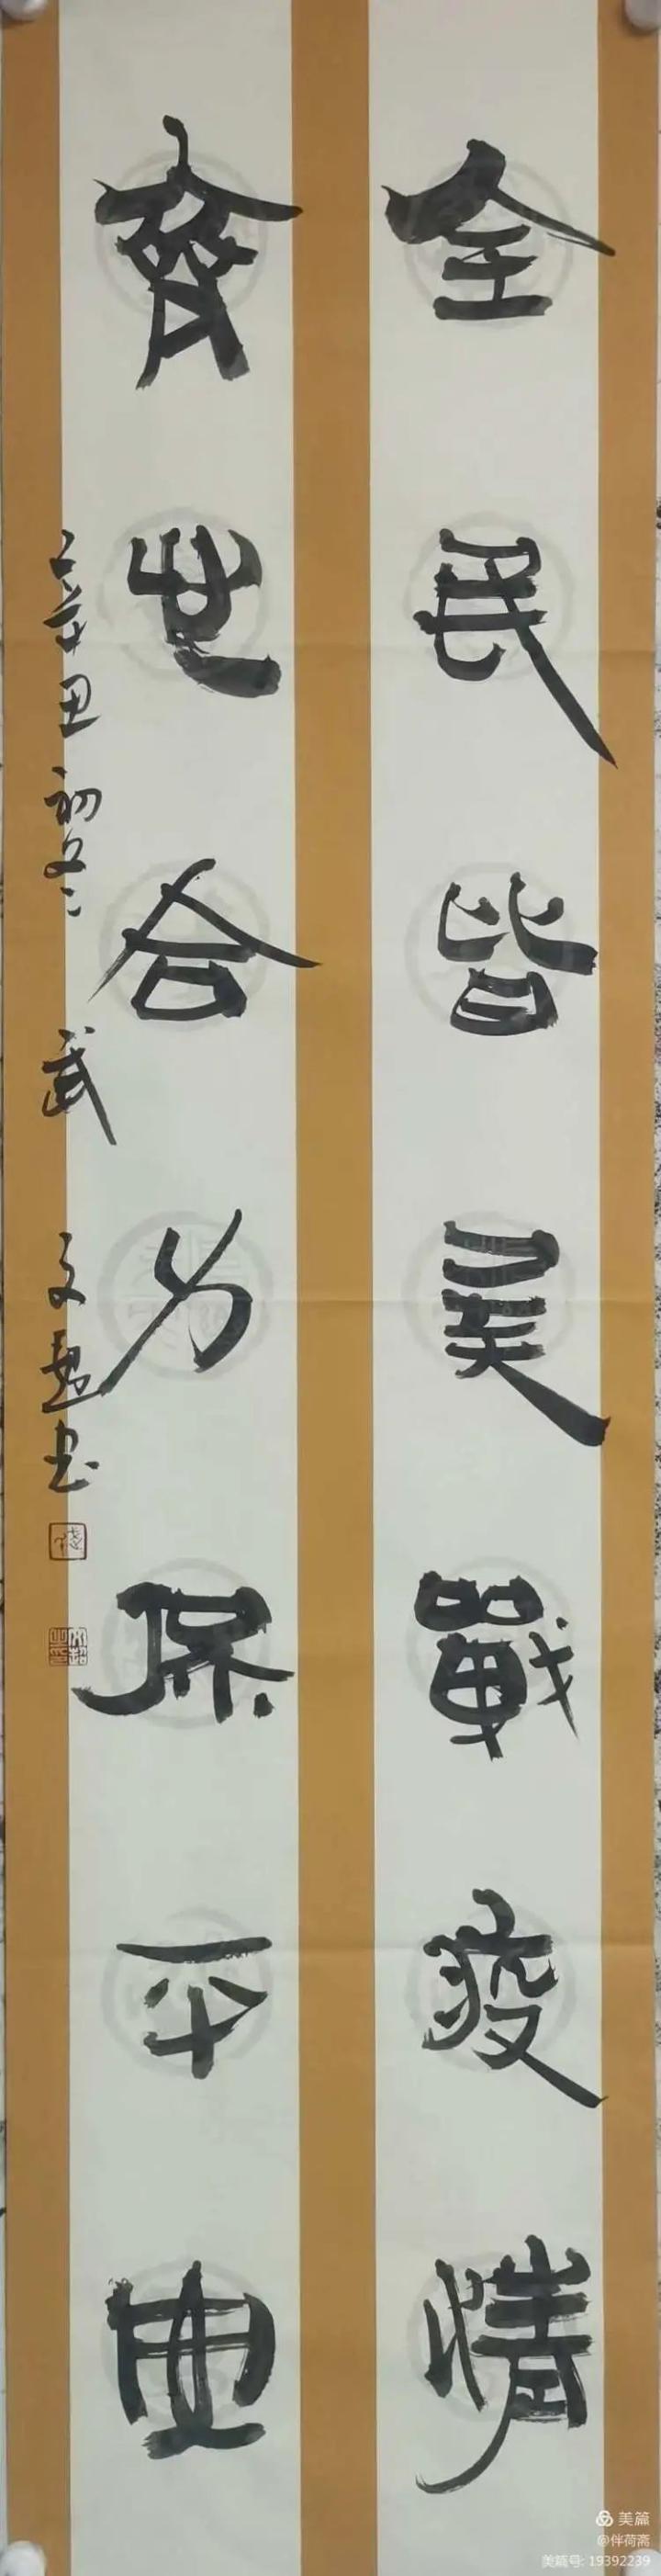 全民皆戰疫情
齊世合力保平曲
辛丑初冬 武文超书
文超之印
美篇
@伴荷斋
美篇号: 19392239